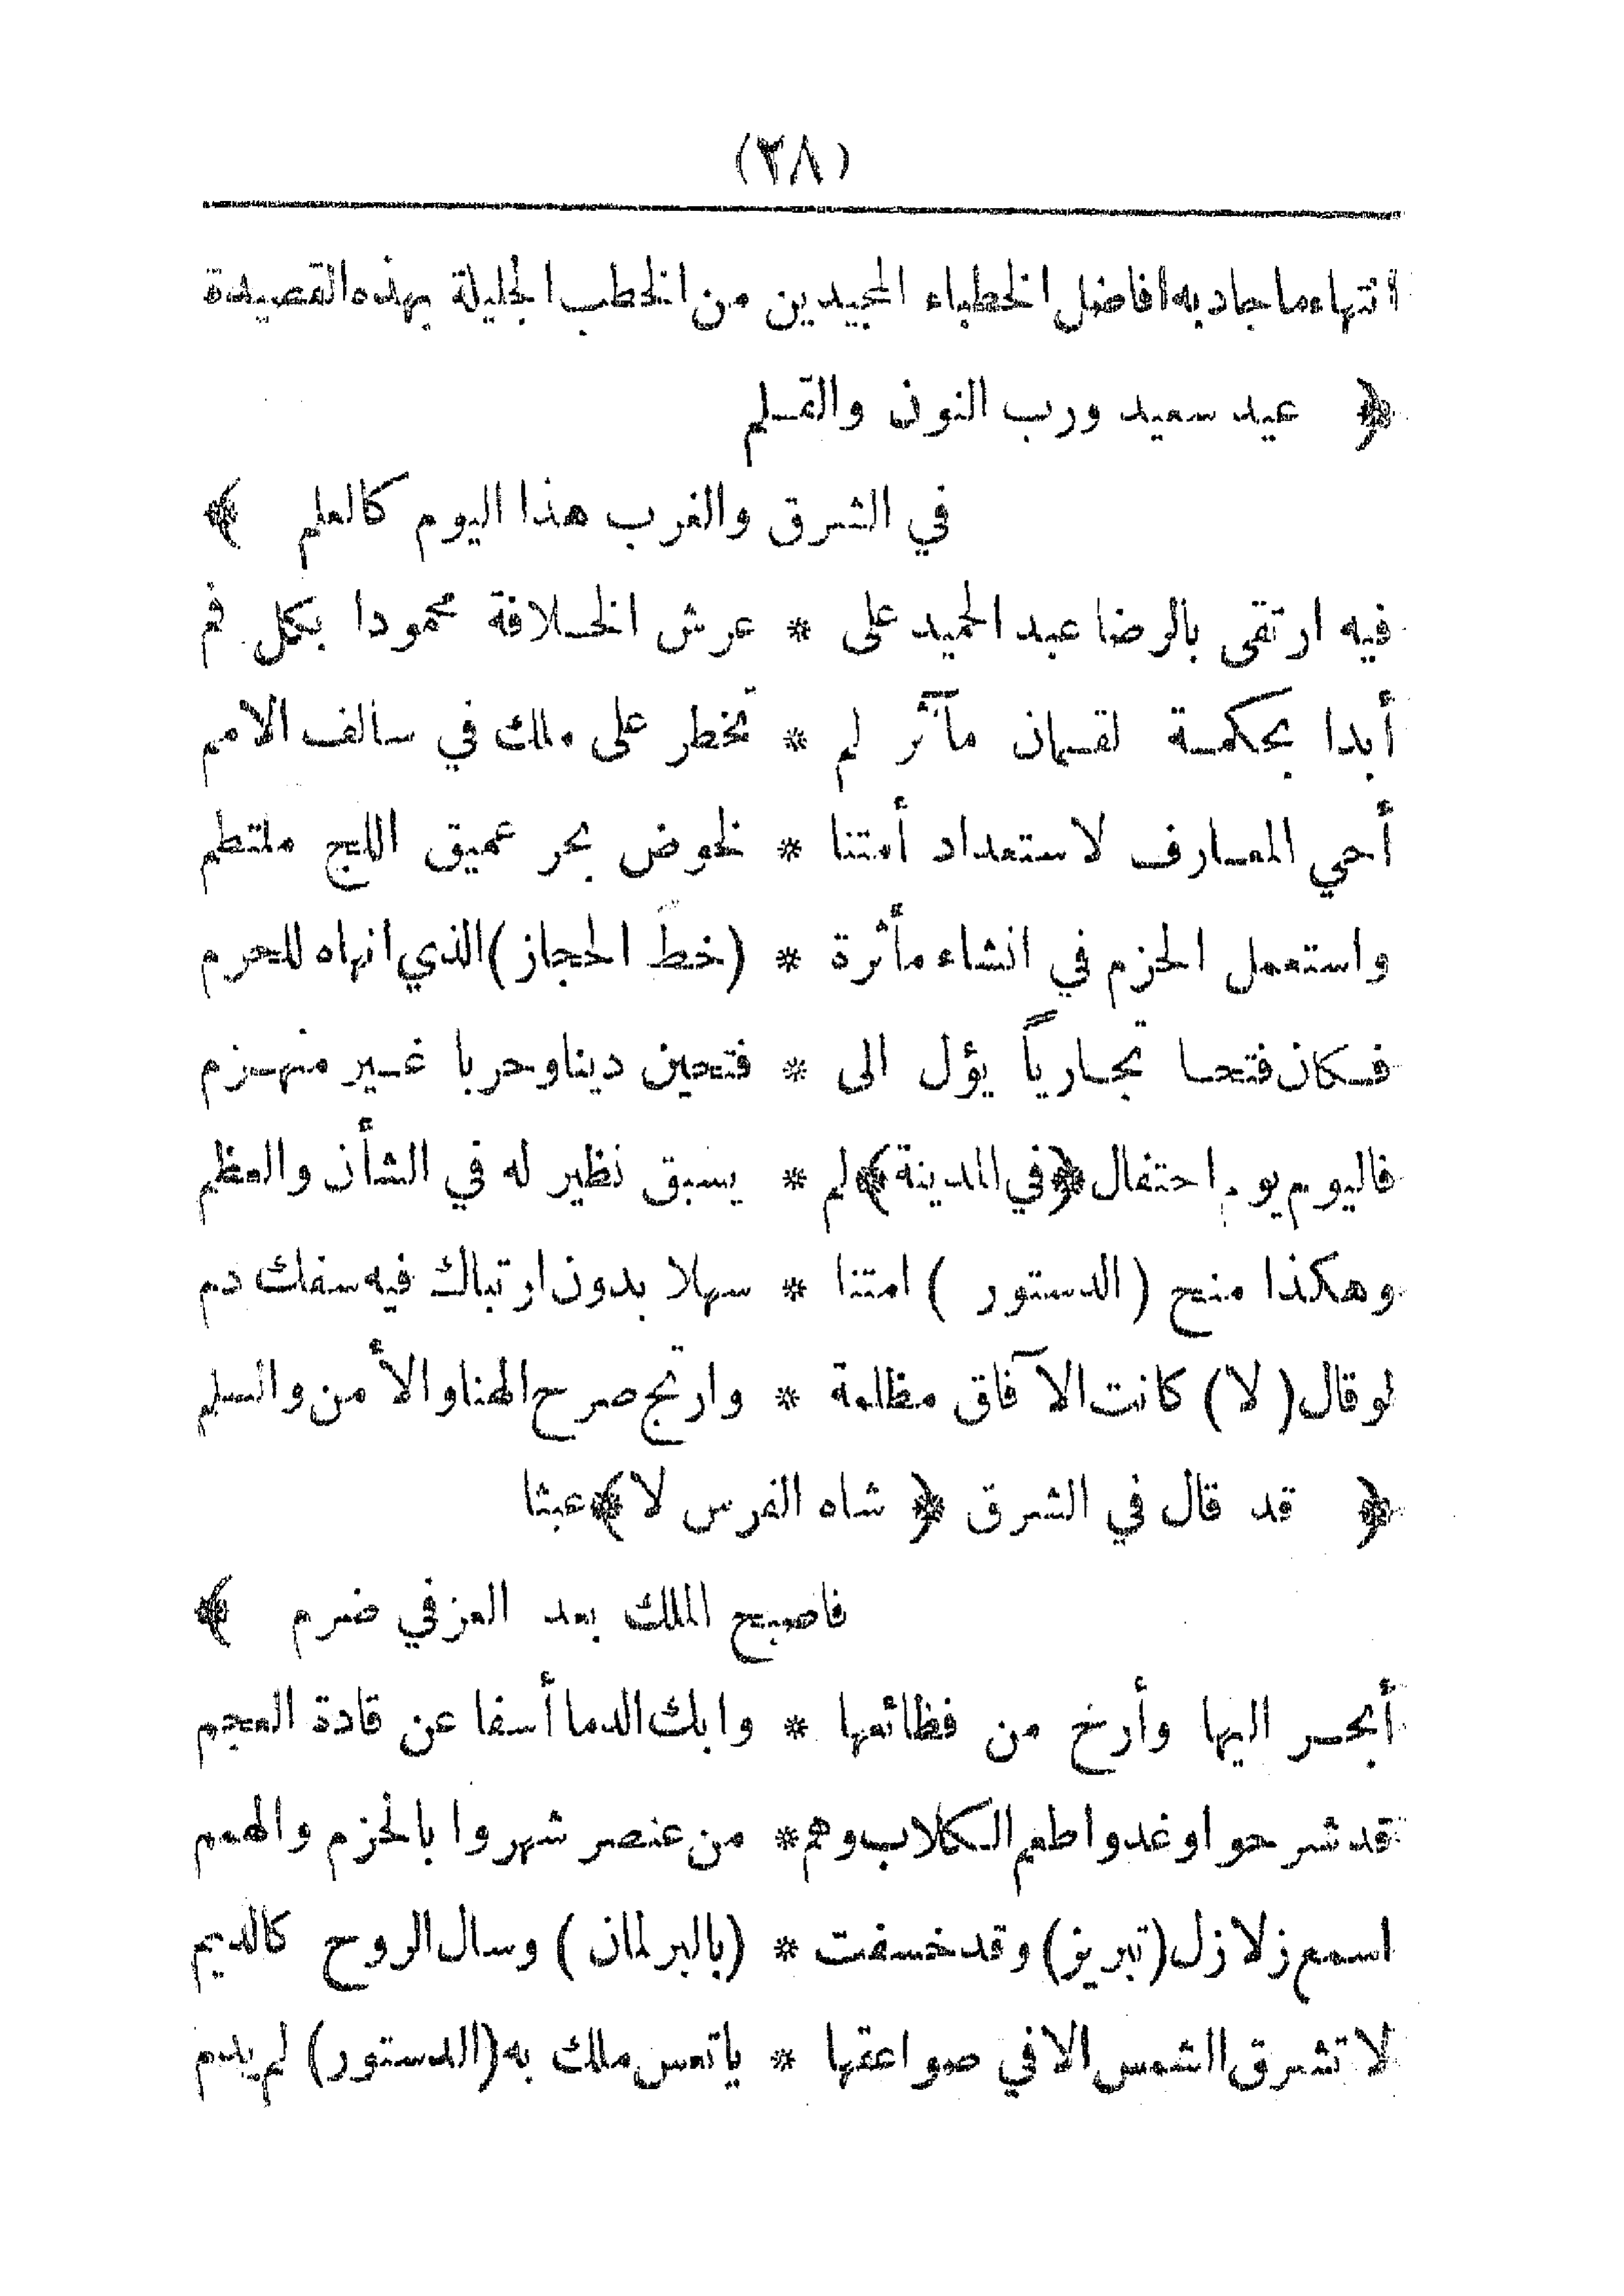 (٢٨)
انتهاء ما جاد به افاضل الخطباء المجيدين من الخطب الجليلة بهذه القصيدة
﴿ عيد سعيد ورب النون والقلم
في الشرق والغرب هذا اليوم كالعلم ﴾
فيه ارتقى بالرضا عبد الحميد على * عرش الخلافة محمودا بكل فم
أبدا بحكمة لقمان مآثر لم * تخطر على ملك في سالف الامم
أحي المعارف لاستعداد أمتنا * لخوض بحر عميق اللج ملتطم
واستعمل الحزم في انشاء مأثرة * (خط الحجاز) الذي انهاه للحرم
فكان فتحا تجارياً يؤل الى * فتحين دينا وحربا غير منهزم
فاليوم يوم احتفال ﴿في المدينة﴾ لم * يسبق نظير له في الشأن والعظم
وهكذا منح (الدستور) امتنا * سهلا بدون ارتباك فيه سفك دم
لو قال (لا) كانت الآفاق مظلمة * وارتج صرح الهنا والأمن والسلم
﴿ قد قال في الشرق ﴿ شاه الفرس لا ﴾ عبثا
فاصبح الملك بعد العز في ضرم ﴾
أبحر اليها وأرخ من فظائعها * وابك الدما أسفا عن قادة العجم
قد شرحوا وغدوا طعم الكلاب وهم * من عنصر شهروا بالحزم والهمم
اسمع زلازل (تبريز) وقد خسفت * (بالبرلمان) وسال الروح كالديم
لا تشرق الشمس الا في صواعقها * يا تعس ملك به (الدستور) لم يدم